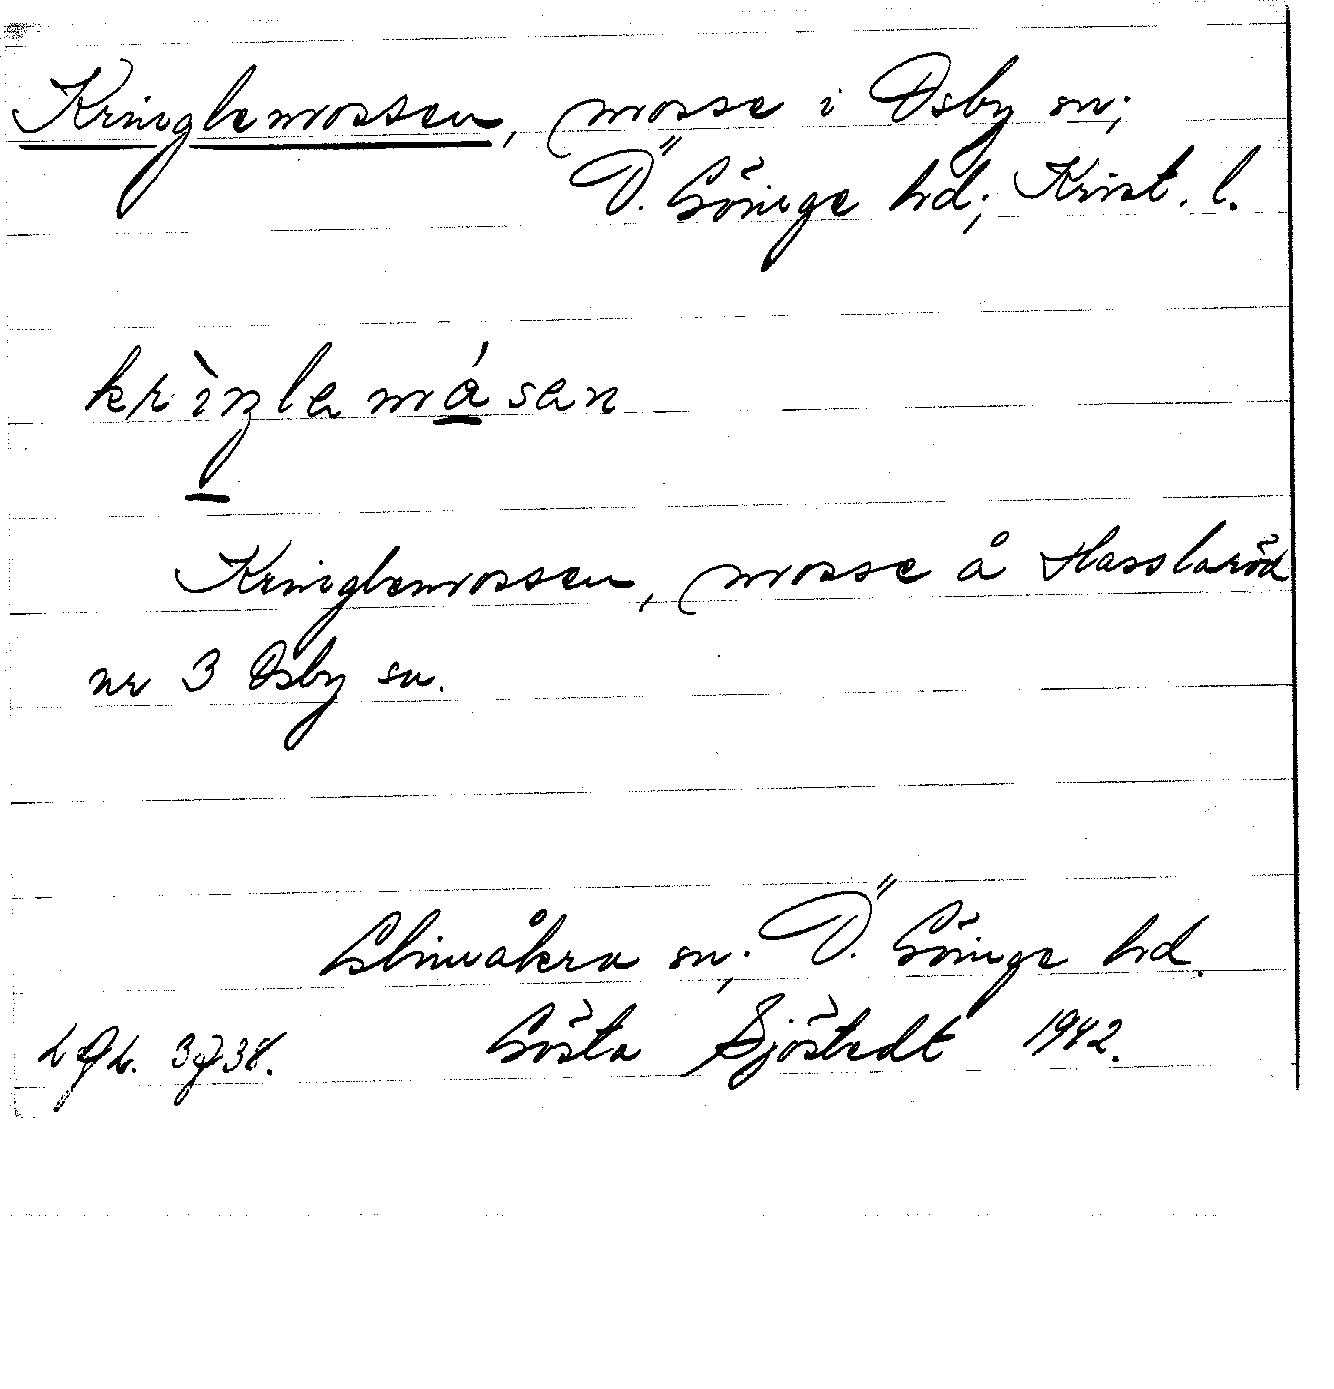 Kringlemossen, mosse i Osby sn;
Ö. Göinge hd; Krist. l.
krìŋlamásan
Kringlemossen, mosse å Hasslaröd
nr 3 Osby sn.
Glimåkra sn; Ö. Göinge hd.
Gösta Sjöstedt 1942.